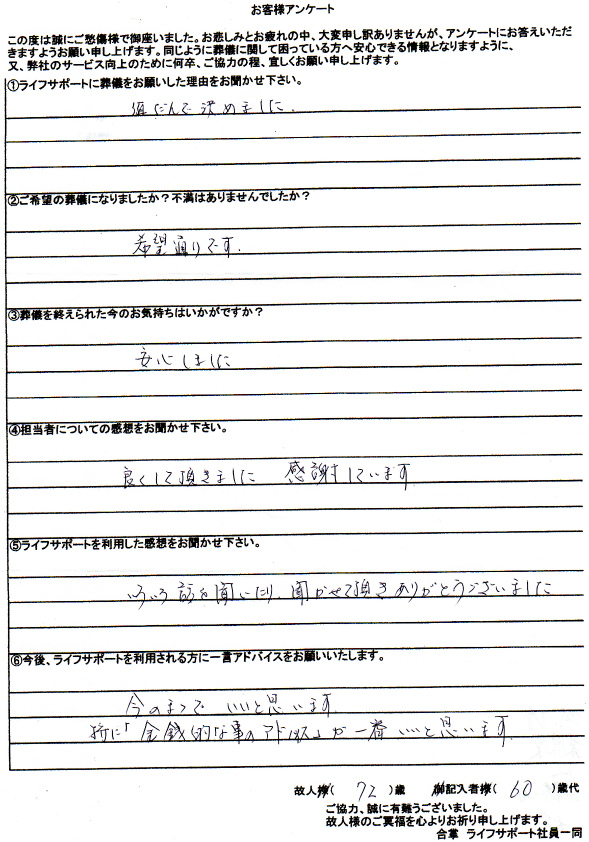 お客様アンケート
この度は誠にご愁傷様で御座いました。お悲しみとお疲れの中、大変申し訳ありませんが、アンケートにお答えいただ
きますようお願い申し上げます。同じように葬儀に関して困っている方へ安心できる情報となりますように、
又、弊社のサービス向上のために何卒、ご協力の程、宜しくお願い申し上げます。
①ライフサポートに葬儀をお願いした理由をお聞かせ下さい。
値だんで決めました.
②ご希望の葬儀になりましたか？不満はありませんでしたか？
希望通りです.
③葬儀を終えられた今のお気持ちはいかがですか？
安心しました
④担当者についての感想をお聞かせ下さい。
良くして頂きました 感謝しています
⑤ライフサポートを利用した感想をお聞かせ下さい。
いろいろ話を聞いたり、聞かせて頂きありがとうございました
⑥今後、ライフサポートを利用される方に一言アドバイスをお願いいたします。
今のままで いいと思います.
特に「金銭的な事のアドバイス」が一番いいと思います.
故人様( 72 )歳 御記入者様( 60 )歳代
ご協力、誠に有難うございました。
故人様のご冥福を心よりお祈り申し上げます。
合掌 ライフサポート社員一同